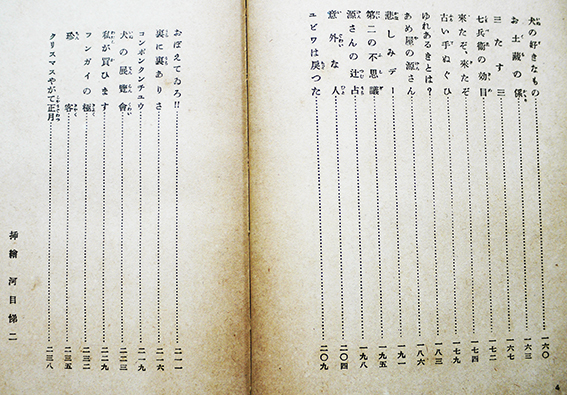 犬の好きなもの 一六〇
お土藏の係 一六三
三たす三 一六七
七兵衞の効目 一七二
來たぞ、來たぞ 一七四
古い手ぬぐひ 一七九
ゆれあるきとは? 一八三
あめ屋の源さん 一八六
悲しみデー 一九一
第二の不思議 一九五
源さんの辻占 一九八
意外な人 二〇四
ユビワは戻つた 二〇九
4
おぼえてゐろ!! 二一一
裏に裏ありさ 二一六
コンポンタンチュウ 二一九
犬の展覽會 二二三
私が買ひます 二二九
フンガイの極 二三二
珍客 二三五
クリスマスやがて正月 二三八
挿繪 河目悌二